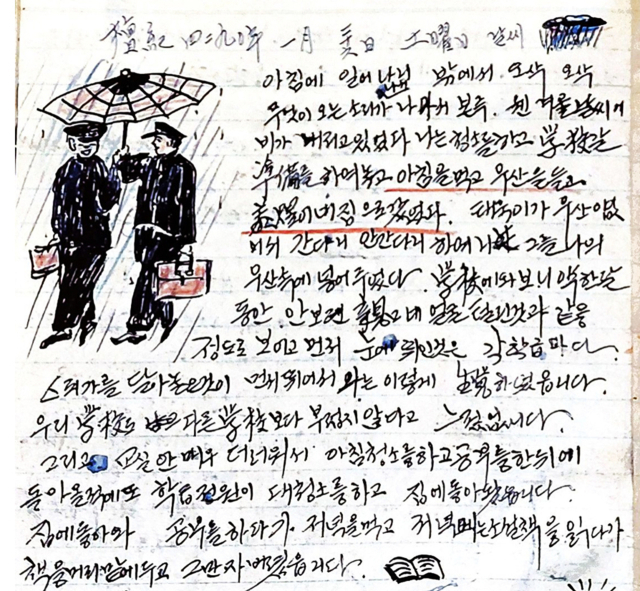 檀紀 四二九0年 一月 日 土曜日 날씨
아침에 일어 나니 밖에서 오삭 오삭
무엇이 오는 소리가 나 나서 보투. 웬 겨울 날씨에
비가 내리고 있었다 나는 청소를하고 学校갈
準備를 하여놓고 아침을 먹고 우산을 들고
집으로 갔었다. 태욱이가 우산 없
어서 간다거니 안간다거니 하여 그를 나의
우산속에 넣어 주었다. 学校에 와 보니 약 한달
동안 안보던 얼골 달린것과 같을
정도로 보이고 먼저 눈에 띄인것은 각 학급마다.
스팀가를 달아놓은것이 먼저 띄어서 나는 이렇게 生覚하였읍니다.
우리 学校도 다른 学校보다 부럽지 않다고 느꼈읍니다.
그리고 교실안 매우 더러워서 아침청소를하고 공부를한뒤에
돌아올적에또 학급전원이 대청소를하고 집에돌아왔읍니다.
집에돌아와 공부를하다가. 저녁을먹고 저녁때는 소설책을 읽다가
책을머리맡에두고 그만 자 버렸읍니다.